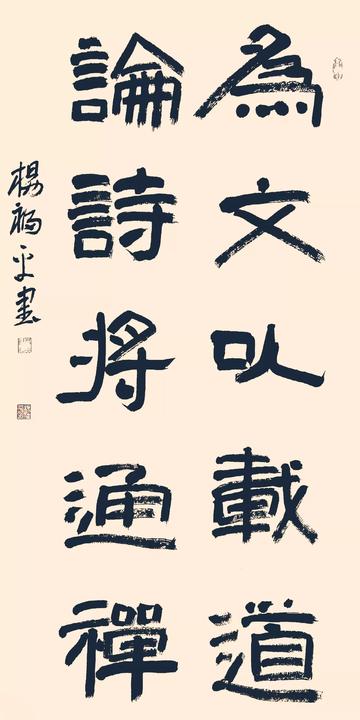 為文以載道
論詩將通禪
楊福平書